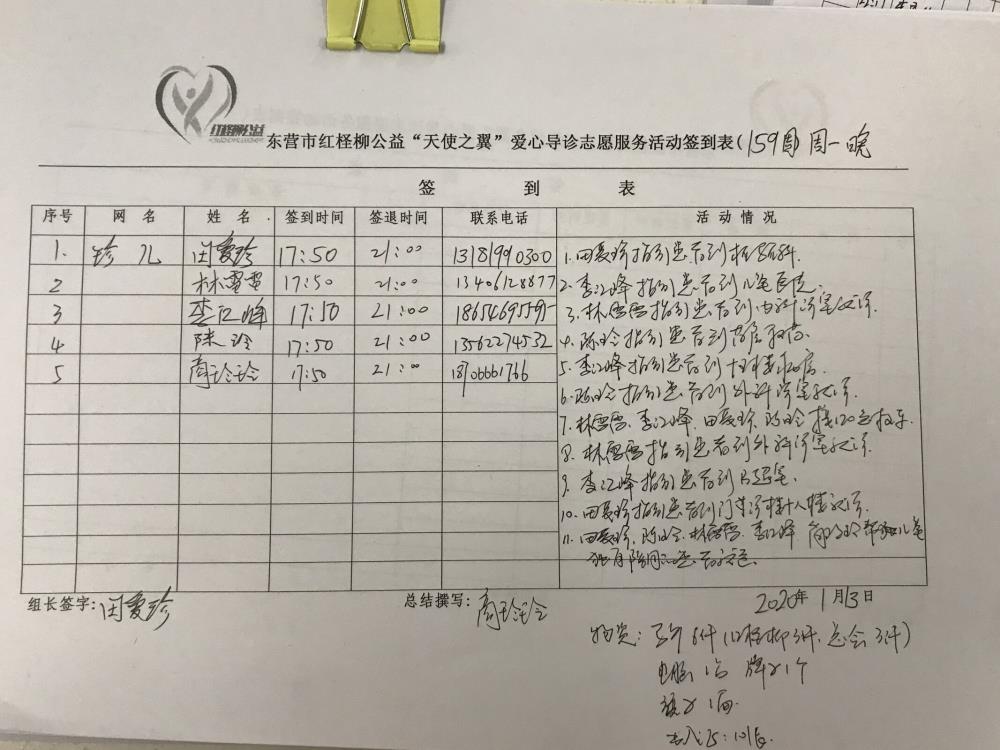 红柽柳公益
东营市红柽柳公益“天使之翼”爱心导诊志愿服务活动签到表(159周)周一晚
签 到 表
序号 网 名 姓 名 签到时间 签退时间 联系电话 活动情况
1. 珍儿 田爱珍 17:50 21:00 13181990300
2 林雷雷 17:50 21:00 13406128877
3 李江峰 17:50 21:00 18654695595
4 陈玲 17:50 21:00 13562274532
5 商玲玲 17:50 21:00 18706661766
1.田爱珍指引患者到
2.李江峰指引患者到儿童医院.
3.林雷雷指引患者到内科诊室就诊.
4.陈玲指引患者到药房取药.
5.李江峰指引患者到
6.陈玲指引患者到外科诊室就诊.
7.林雷雷、李江峰、田爱珍、陈玲接120急救车.
8.林雷雷指引患者到外科诊室就诊.
9.李江峰指引患者到B超室.
10.田爱珍指引患者到门诊
11.田爱珍、陈玲、林雷雷、李江峰、商玲玲
组长签字:田爱珍 总结撰写:商玲玲 2020年1月13日
物资:马甲6件(红柽柳3件,总会3件)
电脑1台 牌子1个
旗子1面